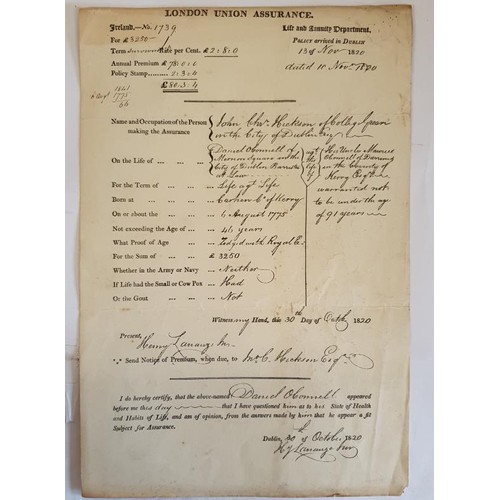 LONDON UNION ASSURANCE.
Ireland.—No. 1739
Life and Annuity Department.
For £3250
Policy arrived in DUBLIN
Term Rate per Cent. £2:8:0
13 of Nov 1820
Annual Premium £78:0:0
dated 11 Novr. 1820
Policy Stamp 2:3:4
£80:3:4
1821
1775
46
Name and Occupation of the Person
making the Assurance
John Chrs. Hickson of College Green
in the City of Dublin Esqr
On the Life of
Daniel OConnell of
Merrion Square in the
City of Dublin Barrister
at Law
agt
the
life
of
His Uncle Maurice
OConnell of Darrinane
in the County of
Kerry Esqr
warranted not
to be under the age
of 91 years
For the Term of Life agt Life
Born at Carhen Co. of Kerry
On or about the 6 August 1775
Not exceeding the Age of 46 years
What Proof of Age Lodged with Royal E.
For the Sum of £3250
Whether in the Army or Navy Neither
If Life had the Small or Cow Pox Had
Or the Gout Not
Witness my Hand, this 30th Day of Octbr 1820
Present,
Henry Lanauze Junr.
Send Notice of Premium, when due, to Jno. C. Hickson Esqr.
I do hereby certify, that the above-named Daniel OConnell appeared
before me this day that I have questioned him as to his State of Health
and Habits of Life, and am of opinion, from the answers made by him that he appear a fit
Subject for Assurance.
Dublin, 30th of October 1820
Hy Lanauze Junr